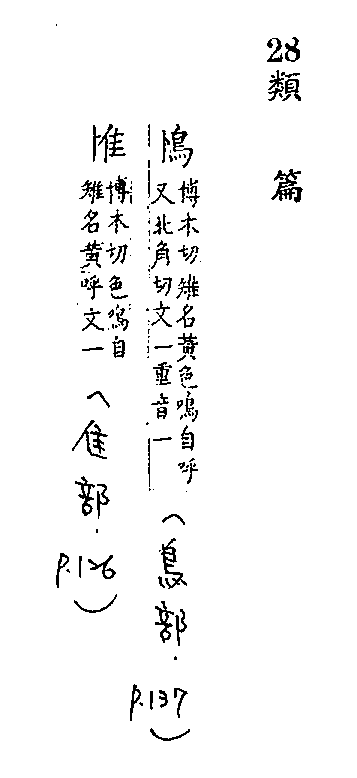 28類 篇
鳪
博木切雉名黃色鳴自呼
又北角切文一重音一
(鳥部. p.137)
博木切色鳴自
雉名黃呼文一
(隹部. p.126)